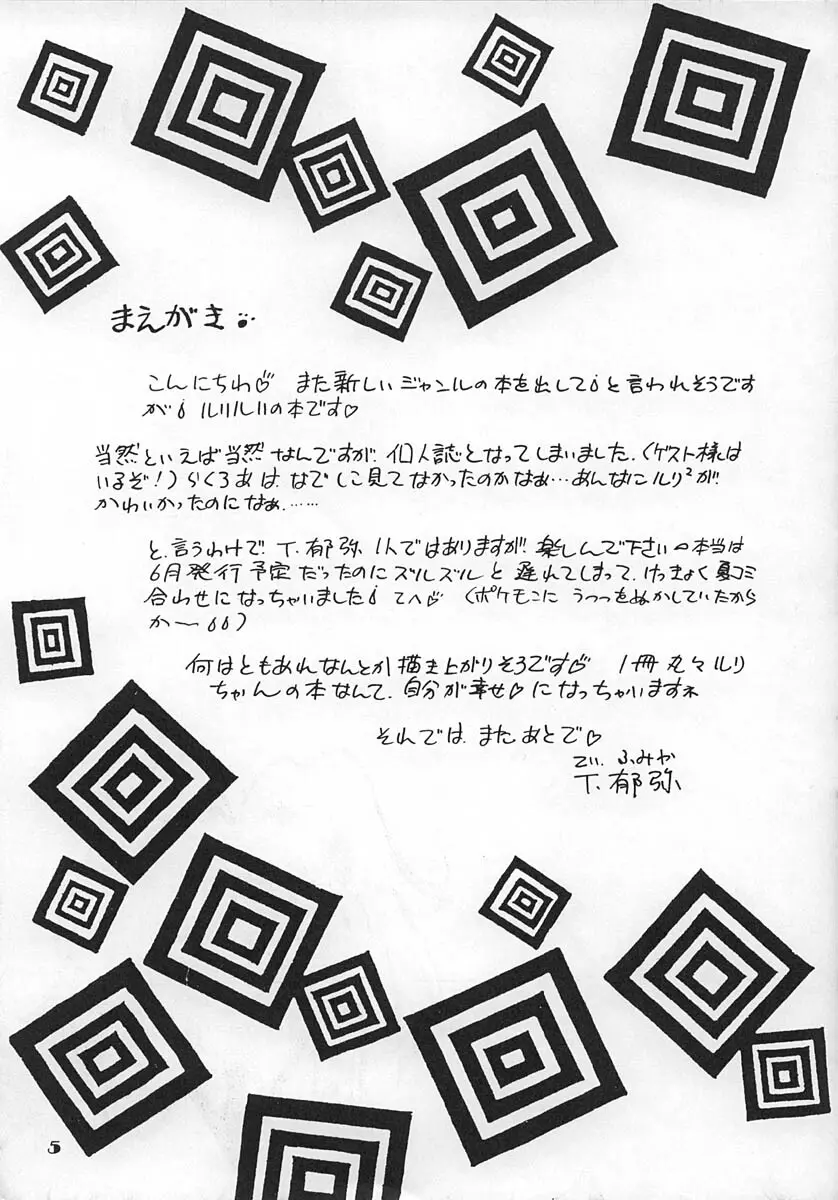 まえがき
こんにちわ♡ また新しいジャンルの本を出して!と言われそうです
が! ルリルリの本です♡
当然といえば当然なんですが、個人誌となってしまいました。(ゲスト様は
いるぞ!)らくろあは、なでしこ見てなかったのかなぁ…あんなにルリ²が
かわいかったのになぁ……
と、言うわけで、T.郁弥 1人ではありますが、楽しんで下さい 本当は
6月発行予定だったのにズルズルと遅れてしまって、けっきょく夏コミ
合わせになっちゃいました! てへ♡ (ポケモンにうつつをぬかしていたから
か〜!!)
何はともあれなんとか描き上がりそうです♡ 1冊丸々ルリ
ちゃんの本なんて、自分が幸せ♡になっちゃいますネ
それでは、またあとで♡
てぃ. ふみや
T.郁弥
5